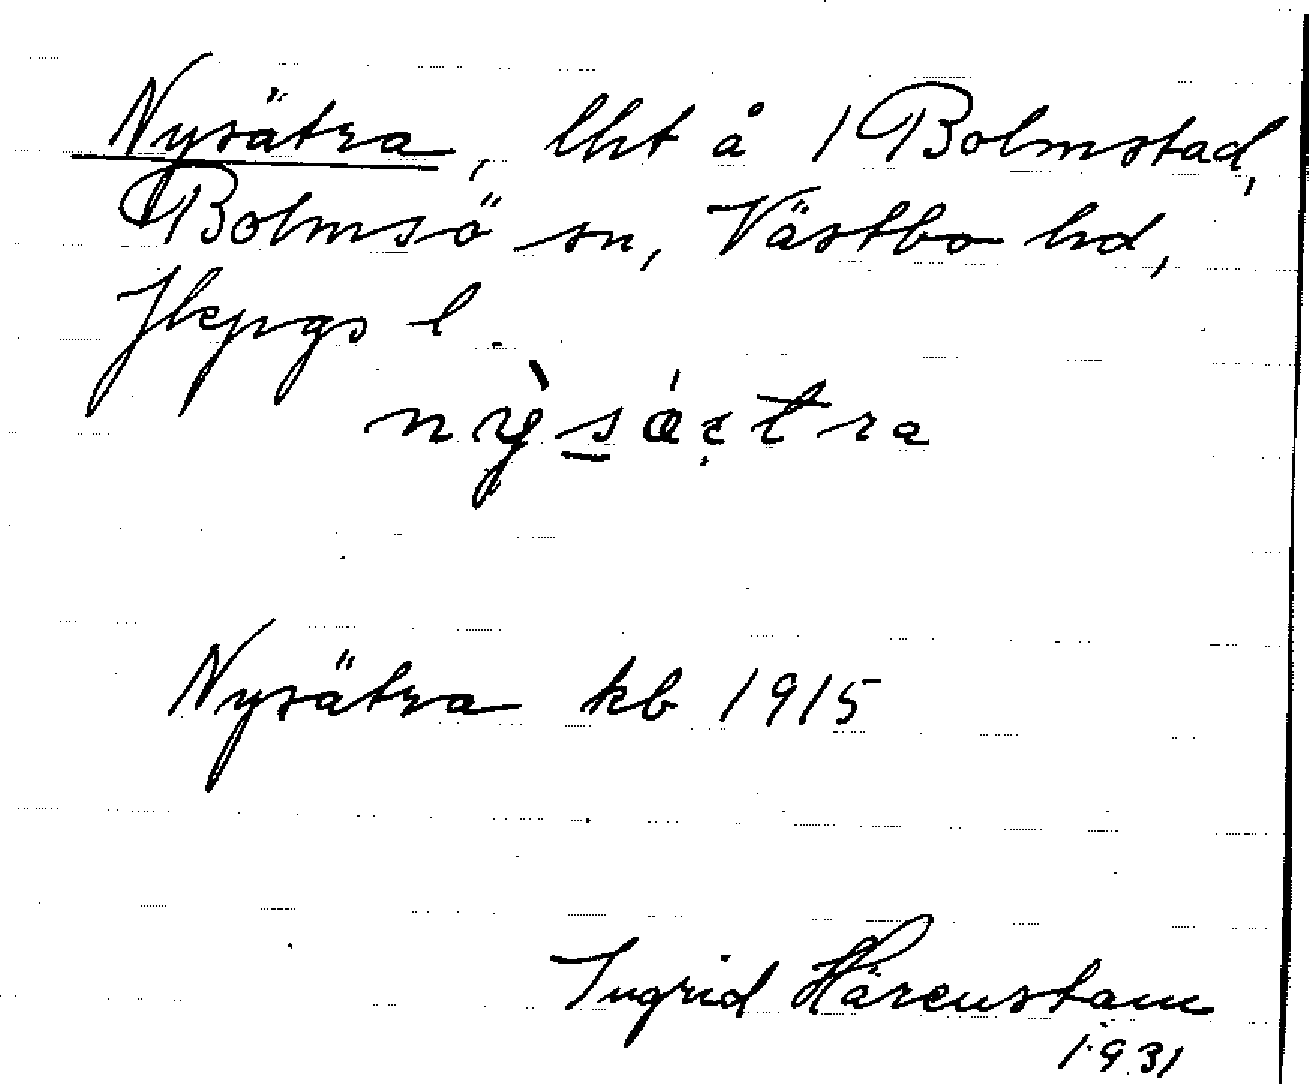 Nysätra, lht å 1 Bolmstad,
Bolmsö sn, Västbo hd,
Jkpgs l.
Nysätra kb 1915
Ingrid Härenstam
1931